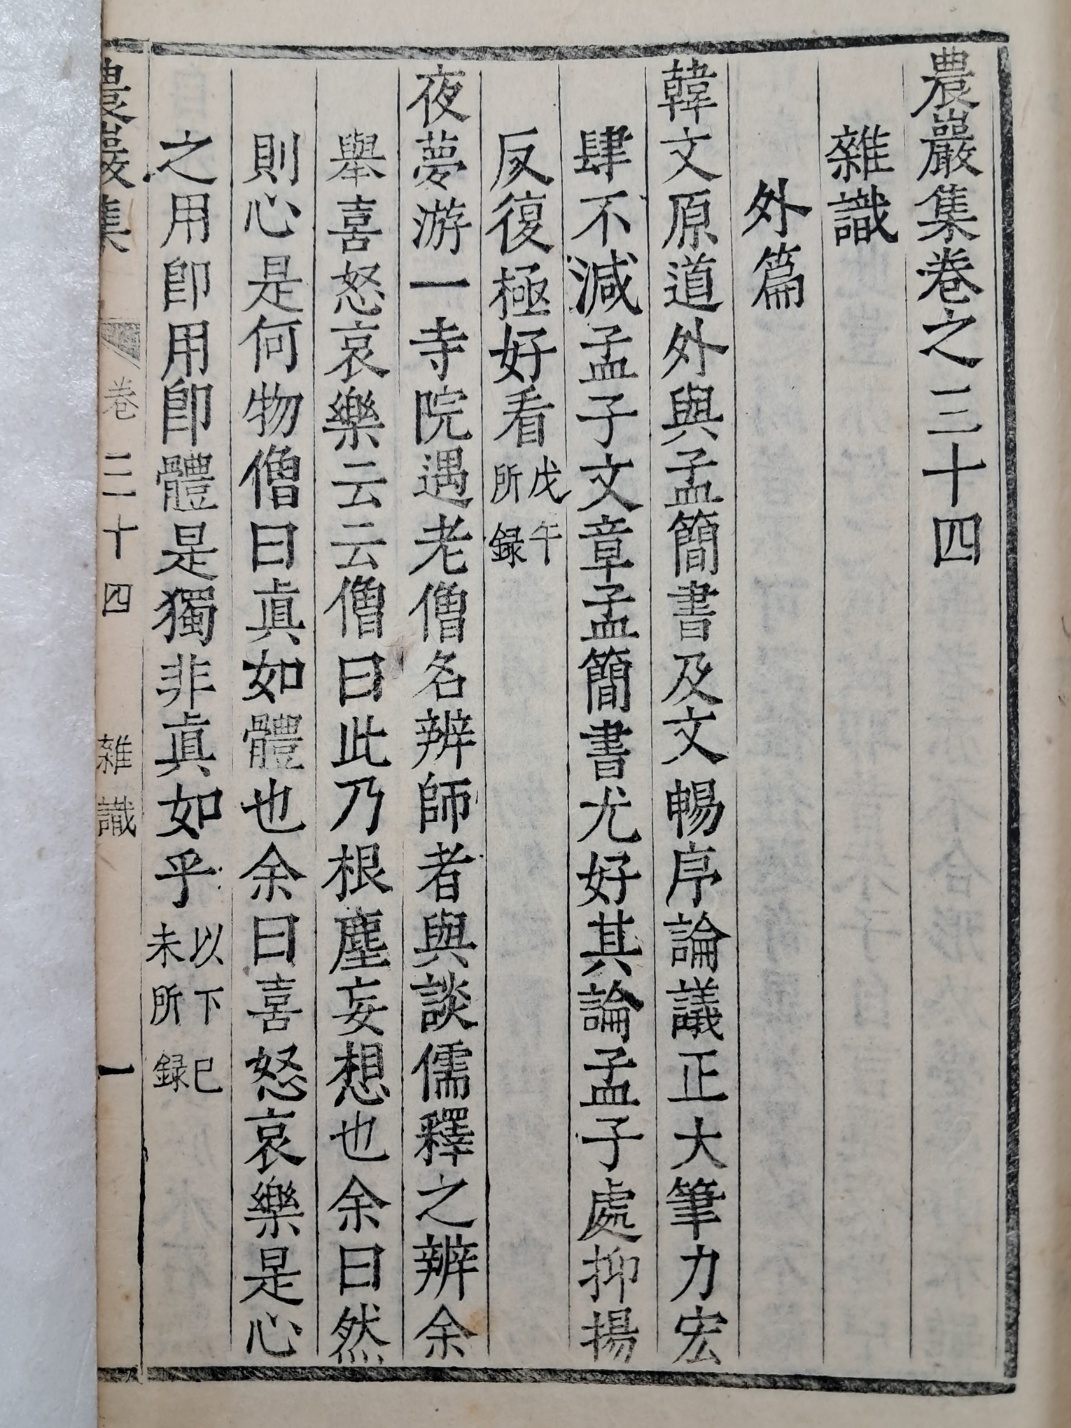 農巖集卷之三十四
雜識
外篇
韓文原道外與孟簡書及文暢序論議正大筆力宏
肆不減孟子文章孟簡書尤好其論孟子處抑揚
反復極好看戊午所録
夜夢游一寺院遇老僧名辨師者與談儒釋之辨余
舉喜怒哀樂云云僧曰此乃根塵妄想也余曰然
則心是何物僧曰眞如體也余曰喜怒哀樂是心
之用卽用卽體是獨非眞如乎以下巳未所録
農巖集 卷三十四 雜識 一